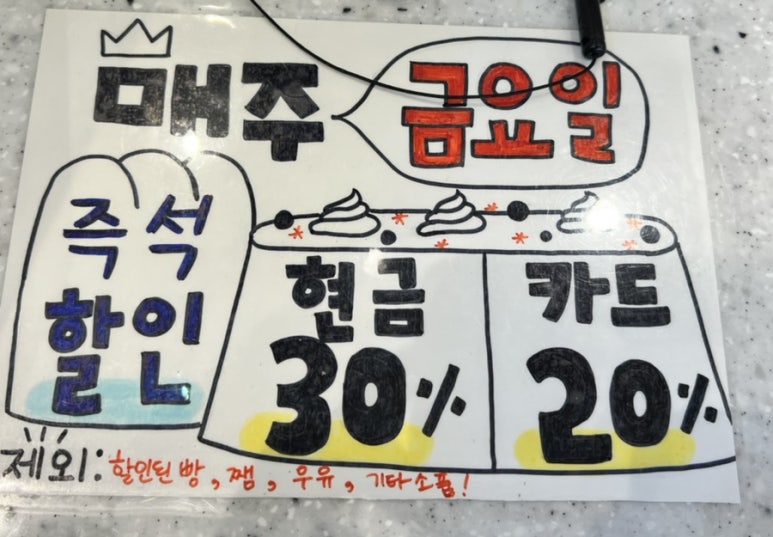 매주 금요일
즉석
할인
현금 카드
30% 20%
제외: 할인된 빵, 쨈, 우유, 기타소품!